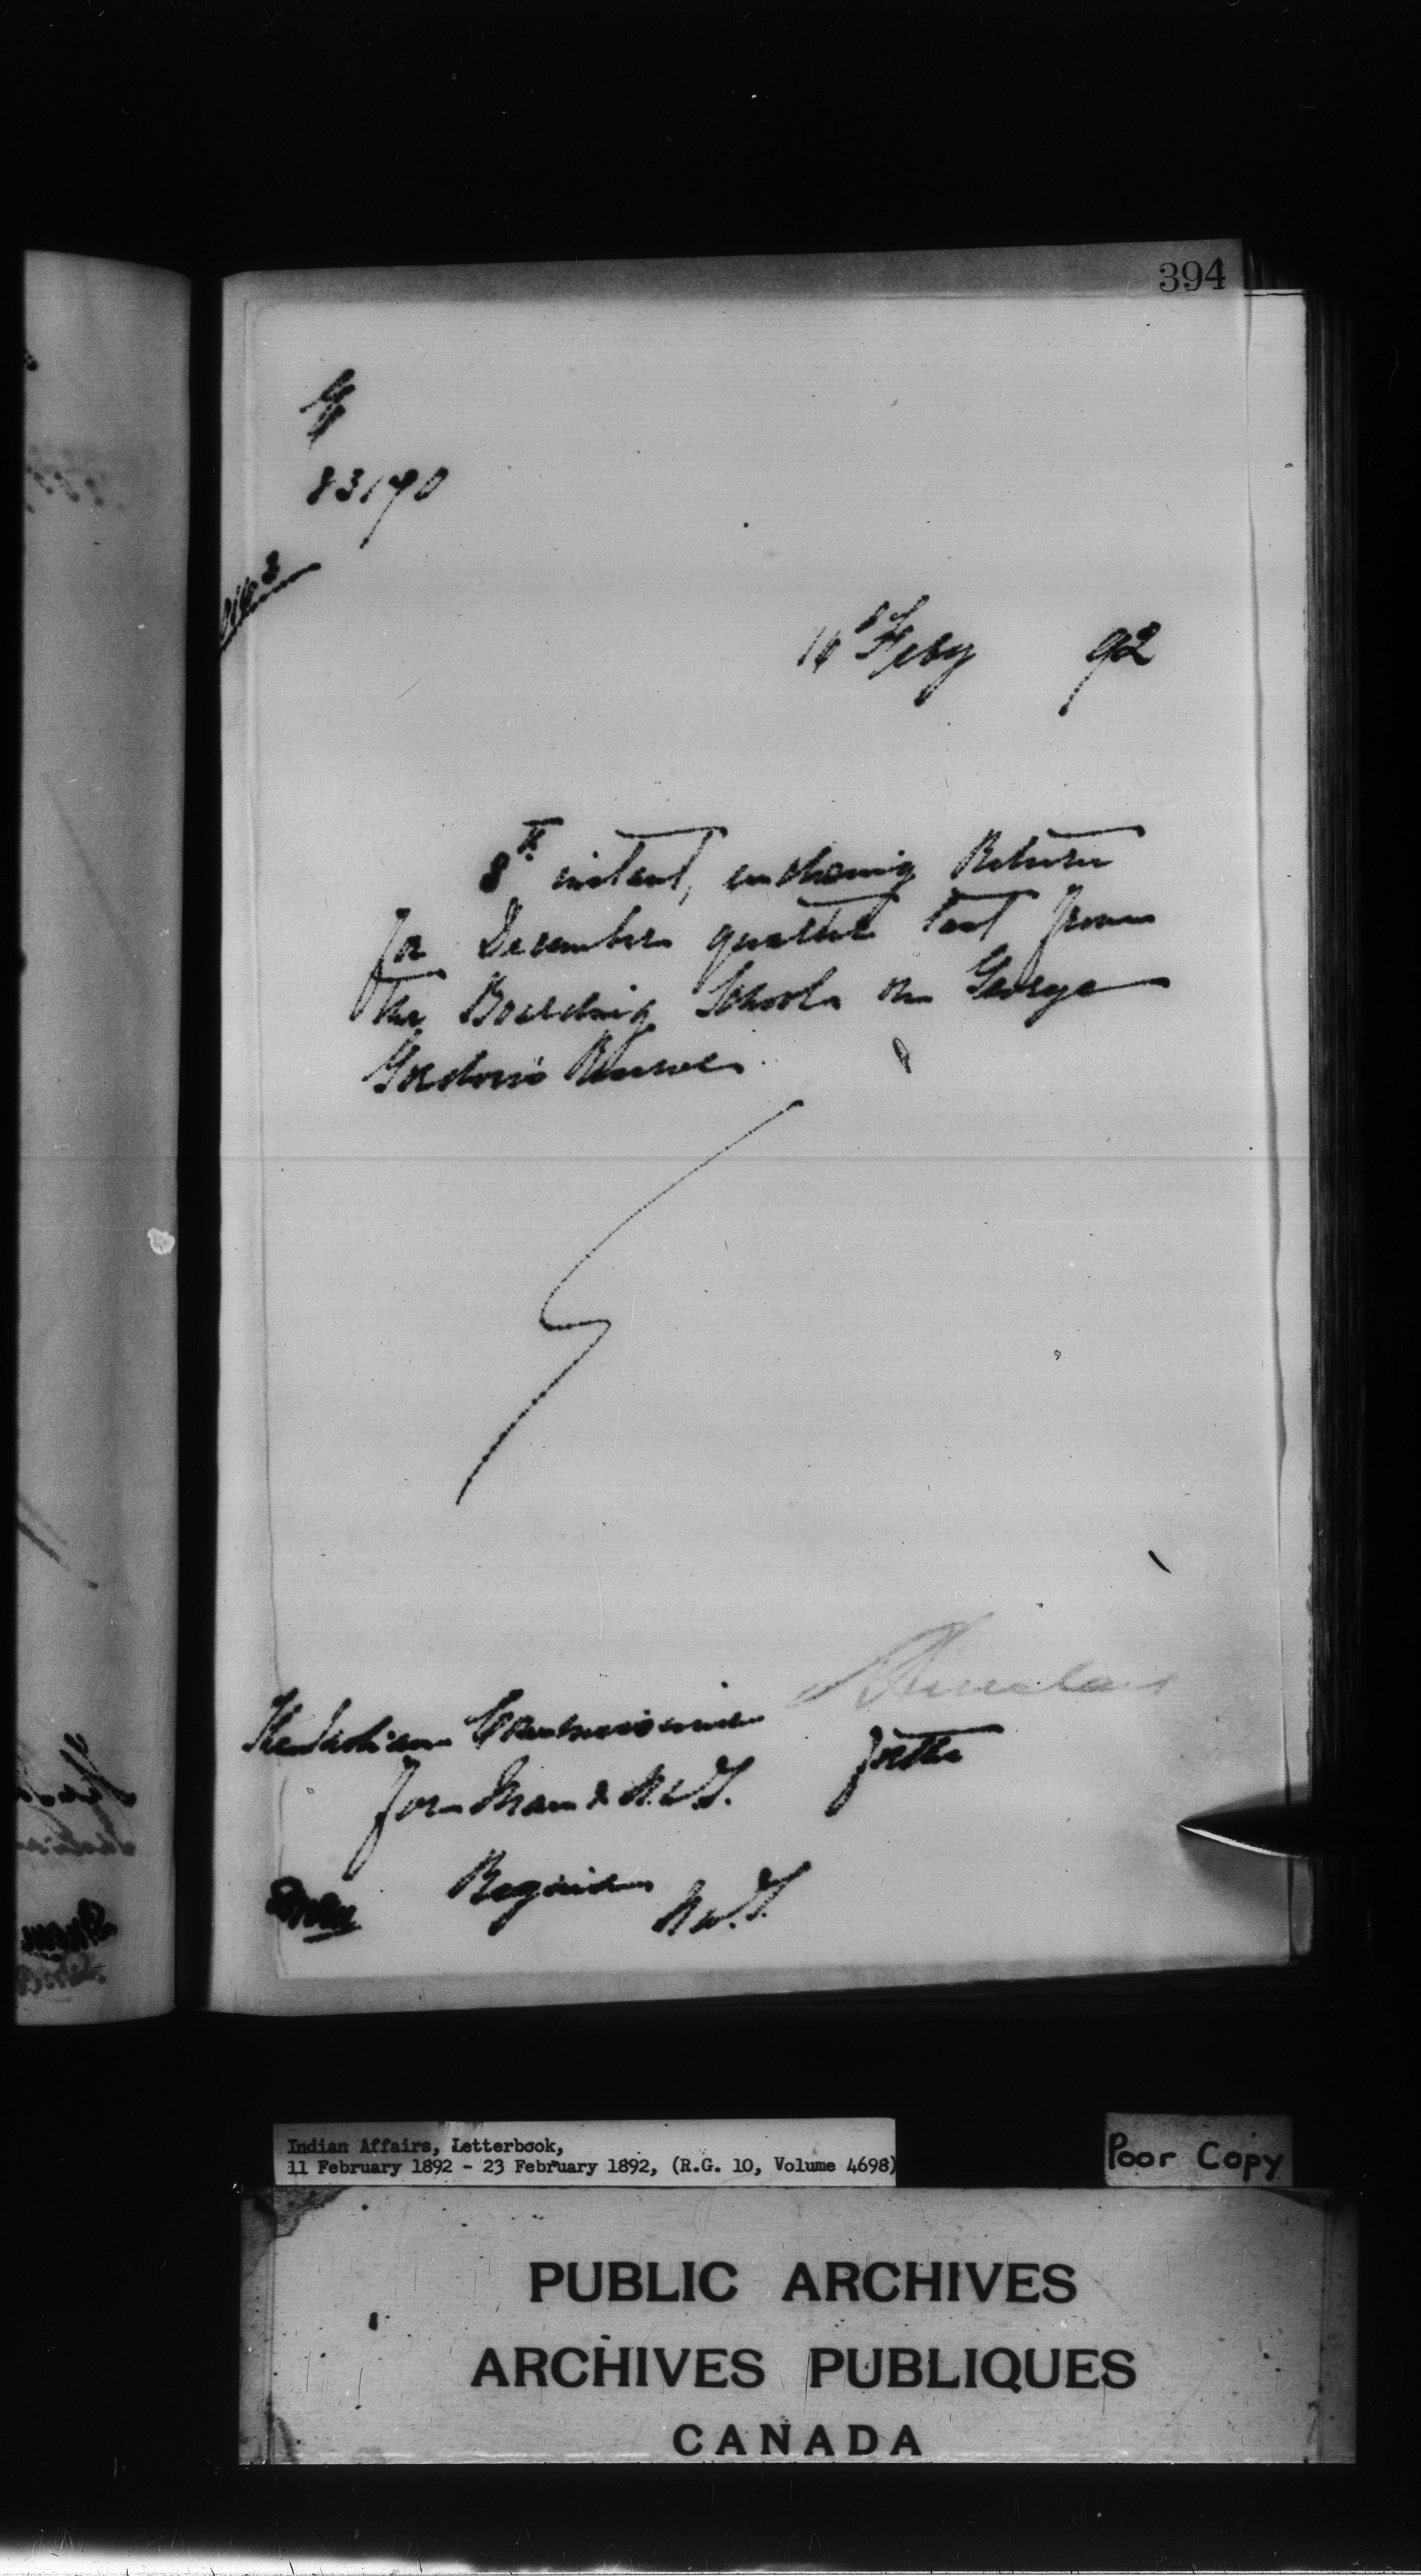 394
83190
Feby 92
8th instant, enclosing Return
for December quarter last from
the Boarding School on George
Gordon's Reserve
The Indian Commissioner
for the
for Man & N.W.T.
Regina
N.W.T.
Indian Affairs, Letterbook,
11 February 1892 - 23 February 1892, (R.G. 10, Volume 4698)
Poor Copy
PUBLIC ARCHIVES
ARCHIVES PUBLIQUES
CANADA